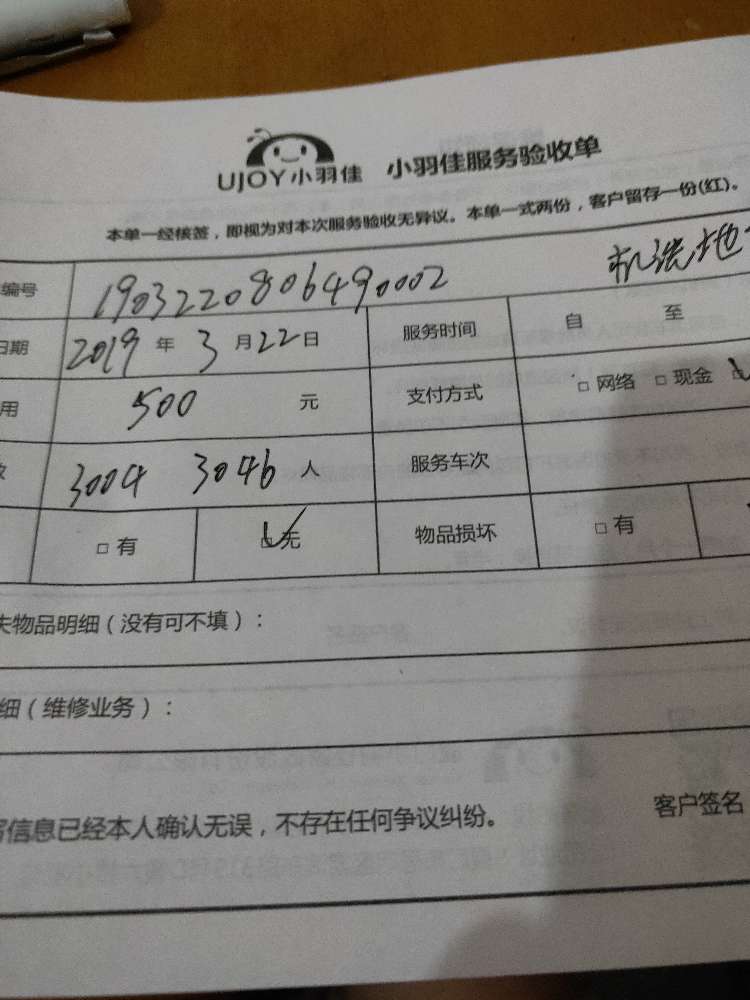 UJOY小羽佳 小羽佳服务验收单
本单一经核签，即视为对本次服务验收无异议。本单一式两份，客户留存一份(红)。
编号 1903220806490002 机洗地
日期 2019 年 3 月 22 日 服务时间 自 至
用 500 元 支付方式 □ 网络 □ 现金
3004 3046 人 服务车次
□ 有 □ 无 物品损坏 □ 有
失物品明细（没有可不填）：
细（维修业务）：
写信息已经本人确认无误，不存在任何争议纠纷。 客户签名